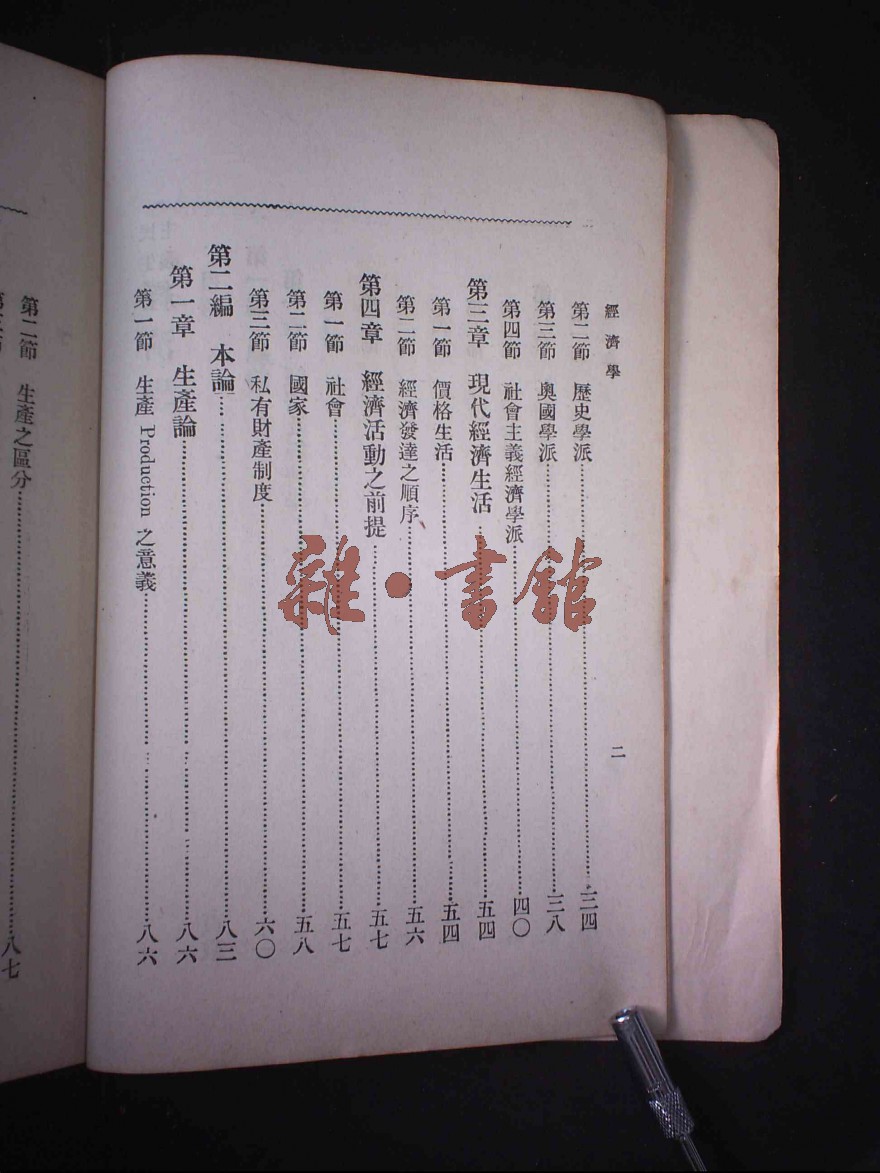 經濟學
二
第二節 歷史學派……三四
第三節 奧國學派……三八
第四節 社會主義經濟學派……四〇
第三章 現代經濟生活……五四
第一節 價格生活……五四
第二節 經濟發達之順序……五六
第四章 經濟活動之前提……五七
第一節 社會……五七
第二節 國家……五八
第三節 私有財產制度……六〇
第二編 本論……八三
第一章 生產論……八六
第一節 生產 Production 之意義……八六
第二節 生產之區分……八七
雜·書館